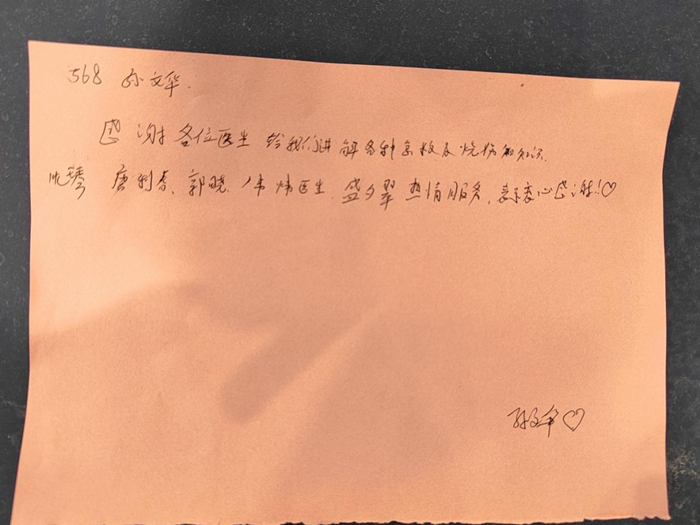 568 孙文华.
感谢各位医生给我们讲解各种急救及烧伤的知识.
沈琴 唐利香、郭晓、韦炜医生. 盛夕翠 热情服务, 表示衷心感谢!♡
孙文华♡